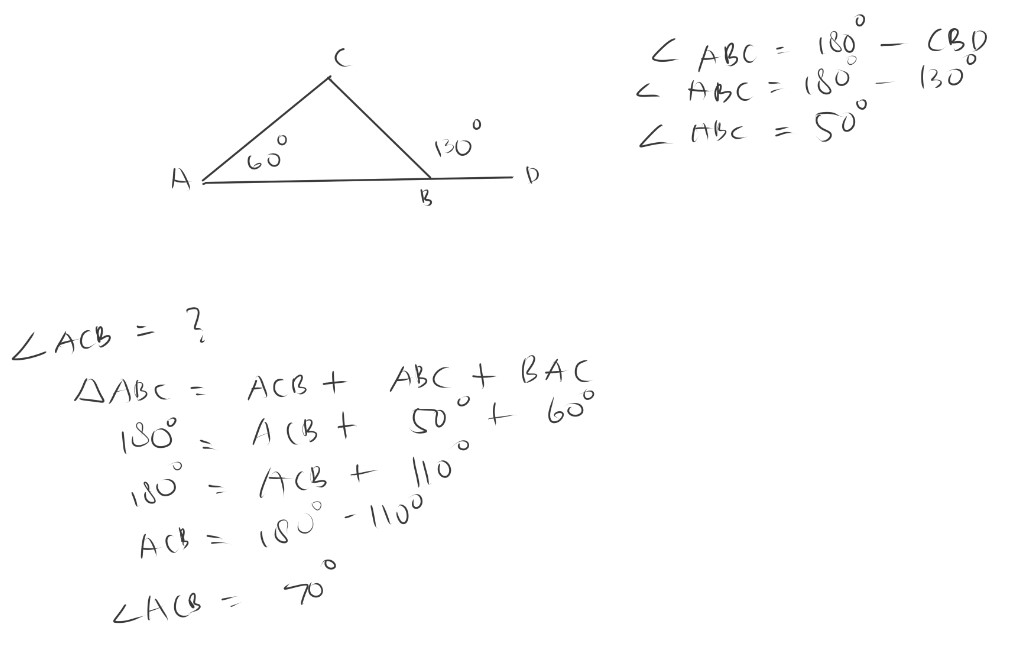 C
60°
130°
A
B
D
∠ ABC = 180° - CBD
∠ ABC = 180° - 130°
∠ ABC = 50°
∠ACB = ?
△ABC = ACB + ABC + BAC
180° = ACB + 50° + 60°
180° = ACB + 110°
ACB = 180° - 110°
∠ACB = 70°